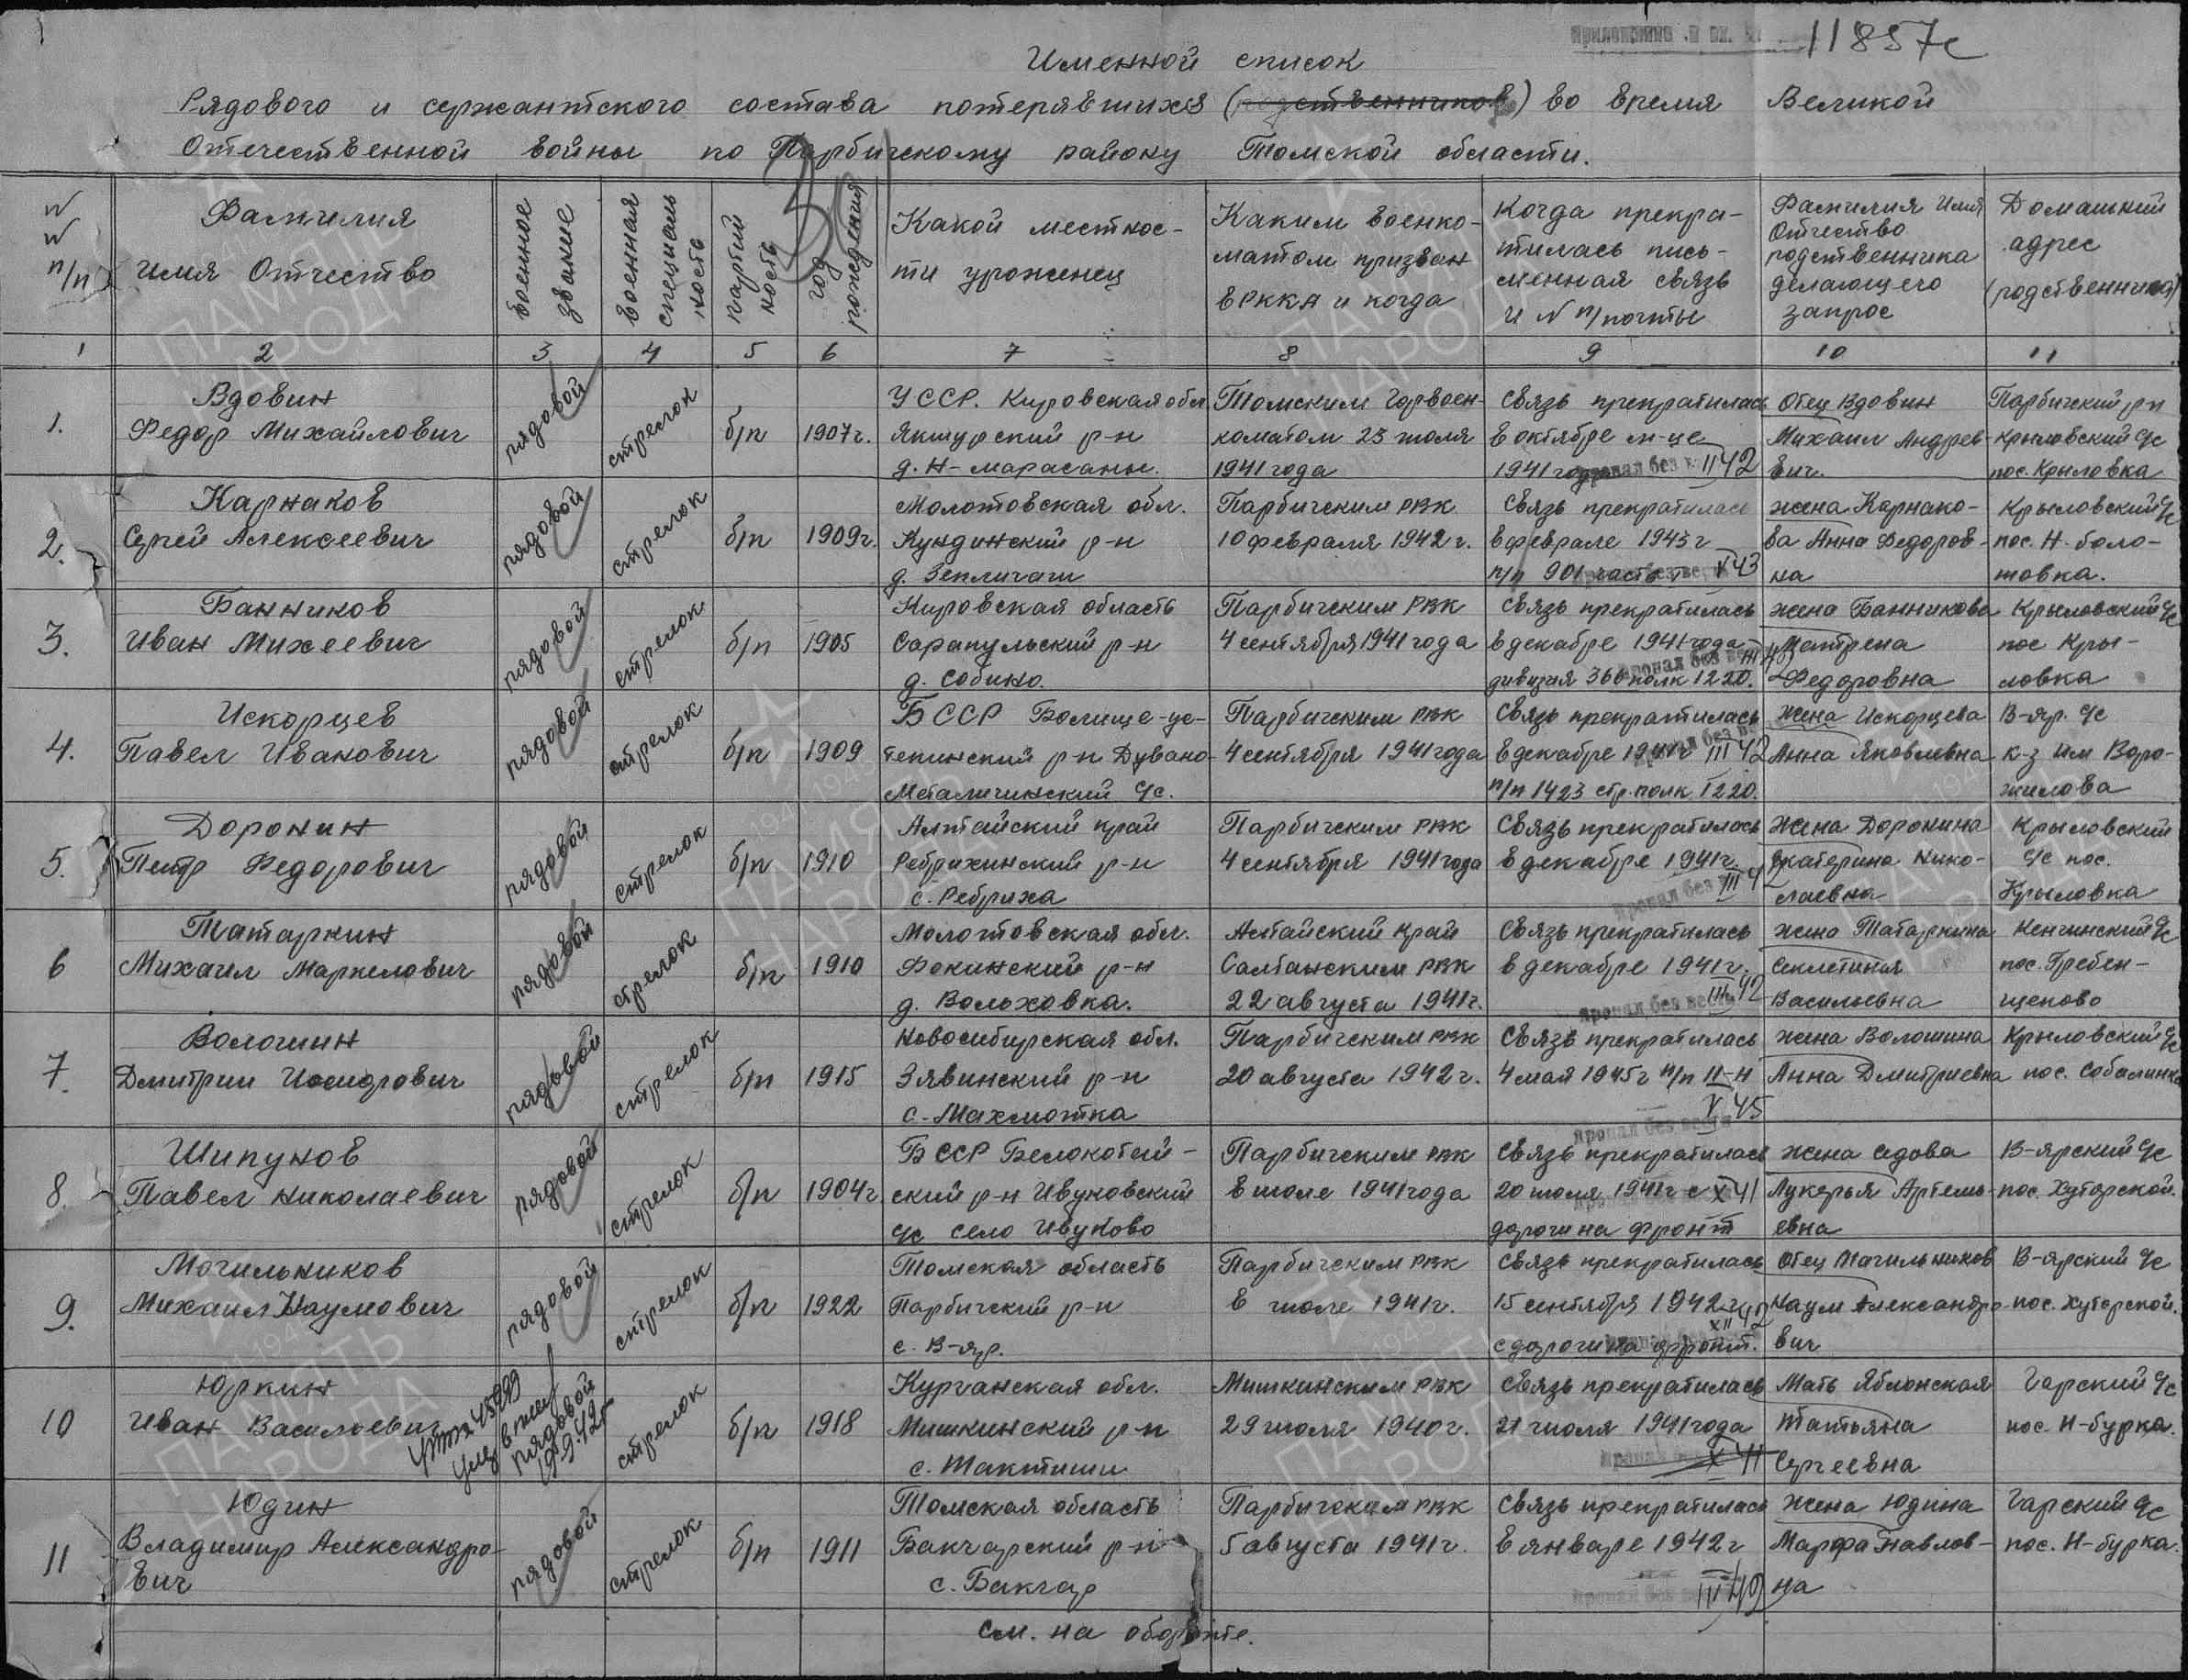 11857с
Именной список
Рядового и сержантского состава потерявшихся (родственников) во время Великой
Отечественной войны по Парбигскому району Томской области.
№ № п/п
Фамилия Имя Отчество
военное звание
военная специальность
партийность
год рождения
Какой местности уроженец
Каким военкоматом призван в РККА и когда
Когда прекратилась письменная связь и № п/почты
Фамилия Имя Отчество родственника делающего запрос
Домашний адрес (родственника)
1 2 3 4 5 6 7 8 9 10 11
1. Вдовин
Федор Михайлович
рядовой стрелок б/п 1907г.
УССР. Кировская обл.
Якшурский р-н
д. Н-марасаны.
Томским Горвоен-
коматом 23 июля
1941 года
Связь прекратилась
в октябре м-це
1941 года
пропал без II 42
Отец Вдовин
Михаил Андрее-
вич.
Парбигский р-н
Крыловский с/с
пос. Крыловка
2. Карнаков
Сергей Алексеевич
рядовой стрелок б/п 1909г.
Молотовская обл.
Кундинский р-н
д.
Парбигским РВК
10 февраля 1942 г.
Связь прекратилась
в феврале 1943 г
п/п 901 часть
V 43
жена Карнако-
ва Анна Федоров-
на
Крыловский с/с
пос. Н. боло-
товка.
3. Банников
Иван Михеевич
рядовой стрелок б/п 1905
Кировская область
Сарапульский р-н
д. Собино.
Парбигским РВК
4 сентября 1941 года
Связь прекратилась
в декабре 1941 года
пропал без вести
дивизия 366 полк 1220.
жена Банникова
Матрена
Федоровна
Крыловский с/с
пос Кры-
ловка
4. Искорцев
Павел Иванович
рядовой стрелок б/п 1909
БССР
р-н Дувано-
Металигинский с/с.
Парбигским РВК
4 сентября 1941 года
Связь прекратилась
в декабре 1941 г III 42
п/п 1423 стр. полк 1220.
жена Искорцева
Анна Яковлевна
В-яр. с/с
к-з им Воро-
шилова
5. Доронин
Петр Федорович
рядовой стрелок б/п 1910
Алтайский край
Ребрихинский р-н
с. Ребриха
Парбигским РВК
4 сентября 1941 года
Связь прекратилась
в декабре 1941г.
пропал без III 42
жена Доронина
Екатерина Нико-
лаевна
Крыловский
с/с пос.
Крыловка
6 Татаркин
Михаил Маркелович
рядовой стрелок б/п 1910
Молотовская обл.
Фокинский р-н
д. Вольховка.
Алтайский край
Салтанским РВК
22 августа 1941г.
Связь прекратилась
в декабре 1941г.
пропал без вести III 42
жена Татаркина
Секлетиния
Васильевна
Кенгинский с/с
пос. Гребен-
щеково
7. Волошин
Дмитрий Исидрович
рядовой стрелок б/п 1915
Новосибирская обл.
Зявинский р-н
с. Махмотка
Парбигским РВК
20 августа 1942 г.
Связь прекратилась
4 мая 1945 г п/п II-Н
V 45
пропал без вести
жена Волошина
Анна Дмитриевна
Крыловский с/с
пос. Собалинка
8. Шипунов
Павел Николаевич
рядовой стрелок б/п 1904г
БССР Белокотай-
ский р-н Ивуковский
с/с село Ивуково
Парбигским РВК
в июле 1941 года
Связь прекратилась
20 июля 1941г с X 41
дороги на фронт
жена Седова
Лукерья Артемь-
евна
В-ярский с/с
пос. Хуторской.
9. Могильников
Михаил Наумович
рядовой стрелок б/п 1922
Томская область
Парбигский р-н
с. В-яр.
Парбигским РВК
в июле 1941г.
Связь прекратилась
15 сентября 1942 г
XII 42
с дороги на фронт.
Отец Могильников
Наум Александро-
вич
В-ярский с/с
пос. Хуторской.
10 Юркин
Иван Васильевич
рядовой
19.9.42г
стрелок б/п 1918
Курганская обл.
Мишкинский р-н
с. Такташи
Мишкинским РВК
29 июля 1940 г.
Связь прекратилась
21 июля 1941 года
пропал без X 41
Мать Яблонская
Татьяна
Сергеевна
Гарский с/с
пос. Н-бурка.
11 Юдин
Владимир Александро-
вич
рядовой стрелок б/п 1911
Томская область
Бакчарский р-н
с. Бакчар
Парбигским РВК
5 августа 1941г.
Связь прекратилась
в январе 1942 г
пропал без
жена Юдина
Марфа Павлов-
на
Гарский с/с
пос. Н-бурка.
См. на обороте.
ПАМЯТЬ НАРОДА